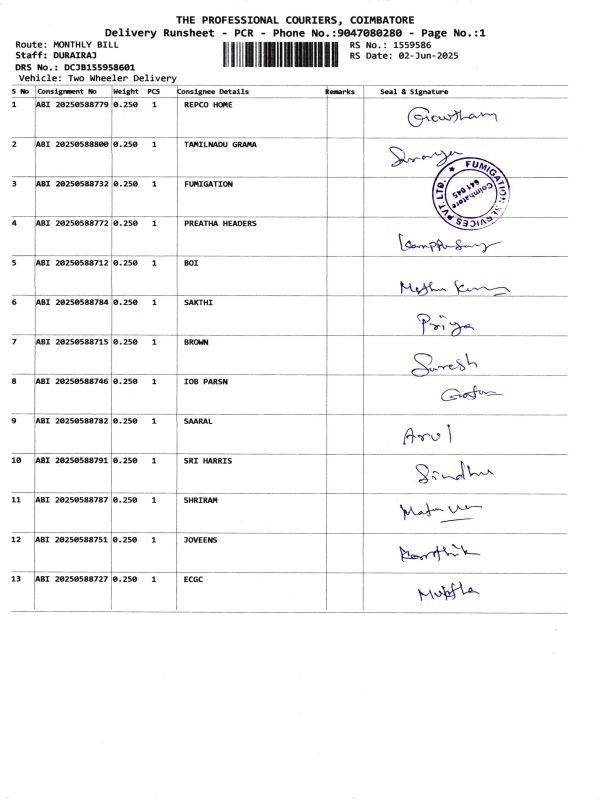 THE PROFESSIONAL COURIERS, COIMBATORE
Delivery Runsheet - PCR - Phone No.:9047080280 - Page No.:1
Route: MONTHLY BILL RS No.: 1559586
Staff: DURAIRAJ RS Date: 02-Jun-2025
DRS No.: DCJB155958601
Vehicle: Two Wheeler Delivery
S No Consignment No Weight PCS Consignee Details Remarks Seal & Signature
1 ABI 20250588779 0.250 1 REPCO HOME Gowtham
2 ABI 20250588800 0.250 1 TAMILNADU GRAMA
3 ABI 20250588732 0.250 1 FUMIGATION FUMIGATION SERVICES PVT. LTD. Coimbatore 641 045
4 ABI 20250588772 0.250 1 PREATHA HEADERS
5 ABI 20250588712 0.250 1 BOI
6 ABI 20250588784 0.250 1 SAKTHI Priya
7 ABI 20250588715 0.250 1 BROWN Suresh
8 ABI 20250588746 0.250 1 IOB PARSN
9 ABI 20250588782 0.250 1 SAARAL Arul
10 ABI 20250588791 0.250 1 SRI HARRIS Sindhu
11 ABI 20250588787 0.250 1 SHRIRAM
12 ABI 20250588751 0.250 1 JOVEENS Karthik
13 ABI 20250588727 0.250 1 ECGC